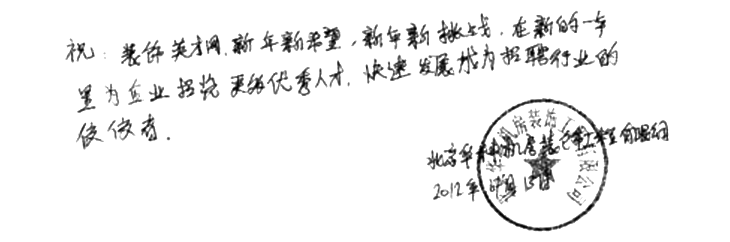 祝：装饰英才网，新年新希望，新年新挑战，在新的一年
里为企业招揽更多优秀人才，快速发展成为招聘行业的
佼佼者。
北京华 机房装饰工程有限公司
2012年 月13日
机房装饰工程有限公司